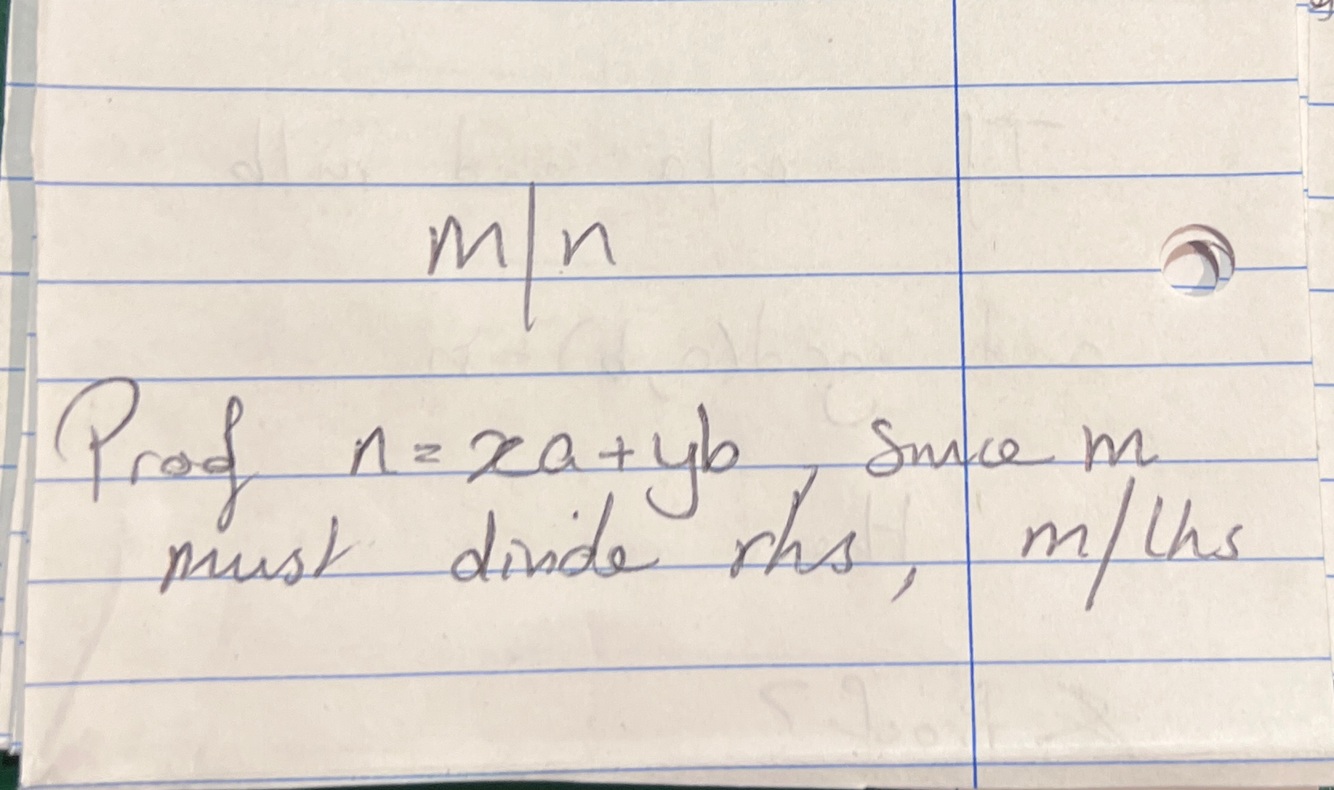 m|n
Proof n = xa + yb, Since m
must divide rhs, m/lhs